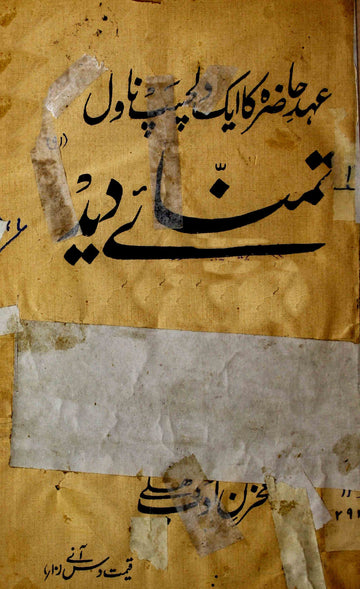 عہد حاضرہ کا ایک دلچسپ ناول
تمنّائے دید
مخزنِ ادب دہلی
قیمت دس آنے